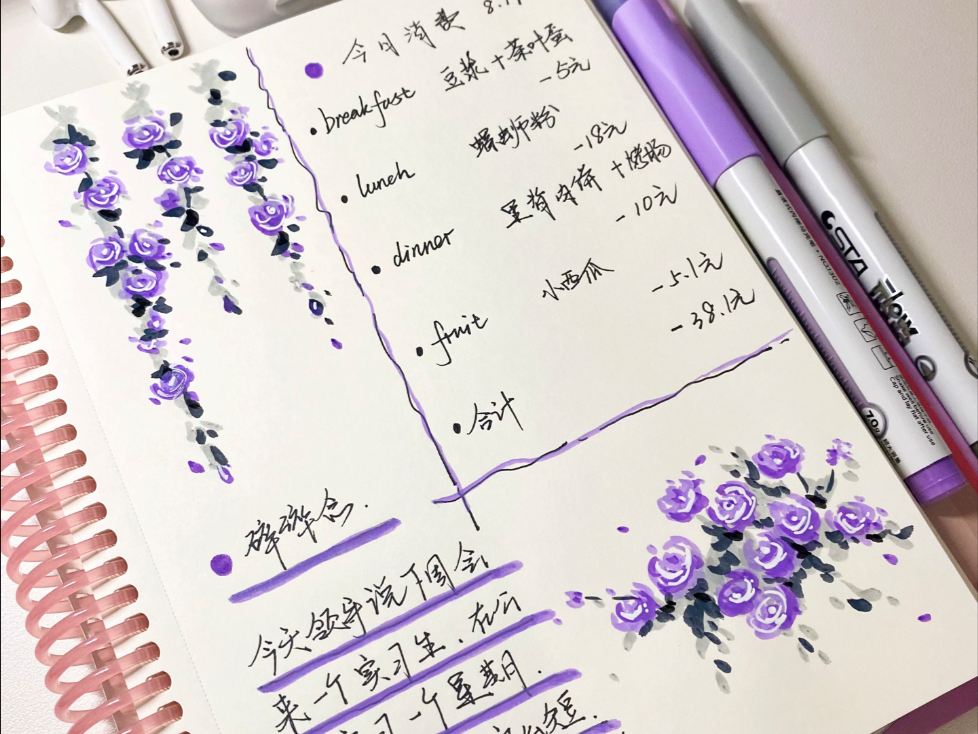 今日消费
breakfast 豆浆+茶叶蛋
-5元
lunch 螺蛳粉
-18元
dinner 里脊肉饼+烤肠
-10元
fruit 小西瓜
-5.1元
合计 -38.1元
碎碎念.
今天领导说下周会
来一个实习生.在
一个星期.
STA
Flow
Cap and lay flat after use